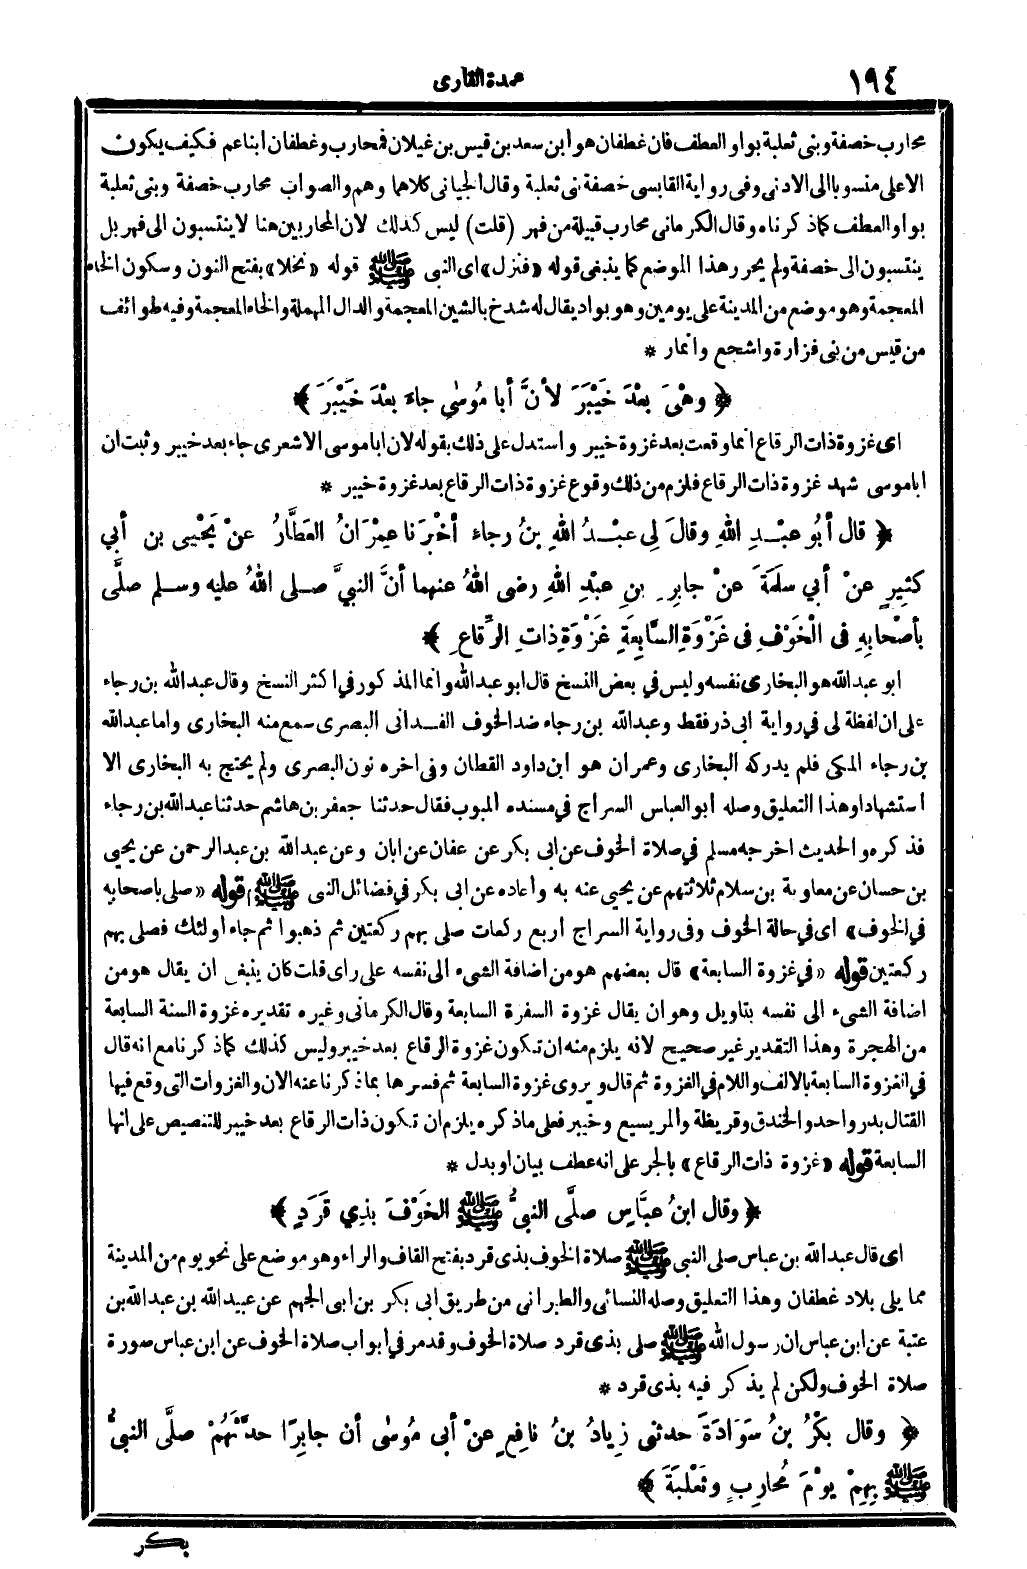 ١٩٤
عمدة القارى
محارب خصفة وبنى ثعلبة بواو العطف فان غطفان هو ابن سعد بن قيس بن غيلان فمحارب وغطفان ابناعم فكيف يكون
الاعلى منسوبا الى الادنى وفى رواية القابسى خصفة بن ثعلبة وقال الجيانى كلاهما وهم والصواب محارب خصفة وبنى ثعلبة
بواو العطف كما ذكرناه وقال الكرمانى محارب قبيلة من فهر (قلت) ليس كذلك لان المحاربين هنا لا ينتسبون الى فهر بل
ينتسبون الى خصفة ولم يحرر هذا الموضع كما ينبغى قوله «فنزل» اى النبى ﷺ قوله «نخلا» بفتح النون وسكون الخاء
المعجمة وهو موضع من المدينة على يومين وهو بواد يقال له شدخ بالشين المعجمة والدال المهملة والخاء المعجمة وفيه طوائف
من قيس من بنى فزارة واشجع وانمار *
﴿ وهْىَ بعْدَ خَيْبَرَ لأنَّ أبا مُوسٰى جاءَ بعْدَ خَيْبَرَ ﴾
اى غزوة ذات الرقاع انما وقعت بعد غزوة خيبر واستدل على ذلك بقوله لان ابا موسى الاشعرى جاء بعد خيبر وثبت ان
ابا موسى شهد غزوة ذات الرقاع فلزم من ذلك وقوع غزوة ذات الرقاع بعد غزوة خيبر *
﴿ قال أبُو عبْدِ اللهِ وقالَ لِى عبْدُ اللهِ بنُ رجاء أخْبرَنا عِمْرَانُ العَطَّارُ عنْ يَحْيٰى بن أبي
كثِيرٍ عنْ أبي سلَمَةَ عنْ جابِرِ بنِ عبْدِ اللهِ رضى اللهُ عنهما أنَّ النبيَّ صلى اللهُ عليه وسلم صلَّى
بأصْحابِهِ فى الْخَوْفِ فى غَزْوَةِ السَّابِعَةِ غَزْوَةِ ذاتِ الرِّقاعِ ﴾
ابو عبد الله هو البخارى نفسه وليس في بعض النسخ قال ابو عبد الله وانما المذكور في اكثر النسخ وقال عبد الله بن رجاء
على ان لفظة لى في رواية ابى ذر فقط وعبد الله بن رجاء ضد الخوف الغدانى البصرى سمع منه البخارى واما عبد الله
بن رجاء المكى فلم يدركه البخارى وعمران هو ابن داود القطان وفى آخره نون البصرى ولم يحتج به البخارى الا
استشهادا وهذا التعليق وصله أبو العباس السراج في مسنده المبوب فقال حدثنا جعفر بن هاشم حدثنا عبد الله بن رجاء
فذكره والحديث اخرجه مسلم في صلاة الخوف عن ابى بكر عن عفان عن ابان وعن عبد الله بن عبد الرحمن عن يحيى
بن حسان عن معاوية بن سلام ثلاثتهم عن يحيى عنه به وأعاده عن ابى بكر في فضائل النبى ﷺ قوله «صلى باصحابه
في الخوف» اى في حالة الخوف وفى رواية السراج أربع ركعات صلى بهم ركعتين ثم ذهبوا ثم جاء أولئك فصلى بهم
ركعتين قوله «في غزوة السابعة» قال بعضهم هو من اضافة الشىء الى نفسه على راى قلت كان ينبغى ان يقال هو من
اضافة الشىء الى نفسه بتاويل وهو ان يقال غزوة السفرة السابعة وقال الكرمانى وغيره تقديره غزوة السنة السابعة
من الهجرة وهذا التقدير غير صحيح لانه يلزم منه ان تكون غزوة الرقاع بعد خيبر وليس كذلك كما ذكرنا مع انه قال
في الغزوة السابعة بالالف واللام في الغزوة ثم قال ويروى غزوة السابعة ثم فسرها بما ذكرنا عنه الان والغزوات التى وقع فيها
القتال بدر واحد والخندق وقريظة والمريسيع وخيبر فعلى ما ذكره يلزم ان تكون ذات الرقاع بعد خيبر للتنصيص على انها
السابعة قوله «غزوة ذات الرقاع» بالجر على انه عطف بيان او بدل *
﴿ وقال ابنُ عبَّاسٍ صلَّى النبىُّ ﷺ الخَوْفَ بذِي قَرَدٍ ﴾
اى قال عبد الله بن عباس صلى النبى ﷺ صلاة الخوف بذى قرد بفتح القاف والراء وهو موضع على نحو يوم من المدينة
مما يلى بلاد غطفان وهذا التعليق وصله النسائى والطبرانى من طريق ابى بكر بن ابى الجهم عن عبيد الله بن عبد الله بن
عتبة عن ابن عباس ان رسول الله ﷺ صلى بذى قرد صلاة الخوف وقد مر في أبواب صلاة الخوف عن ابن عباس صورة
صلاة الخوف ولكن لم يذكر فيه بذى قرد *
﴿ وقال بكْرُ بنُ سَوَادَةَ حدثنى زِيادُ بنُ نافِعٍ عنْ أبى مُوسٰى أن جابِرًا حدَّثَهُمْ صلَّى النبىُّ
ﷺ بِهِمْ يوْمَ مُحارِبٍ وثَعْلبَةَ ﴾
بكر